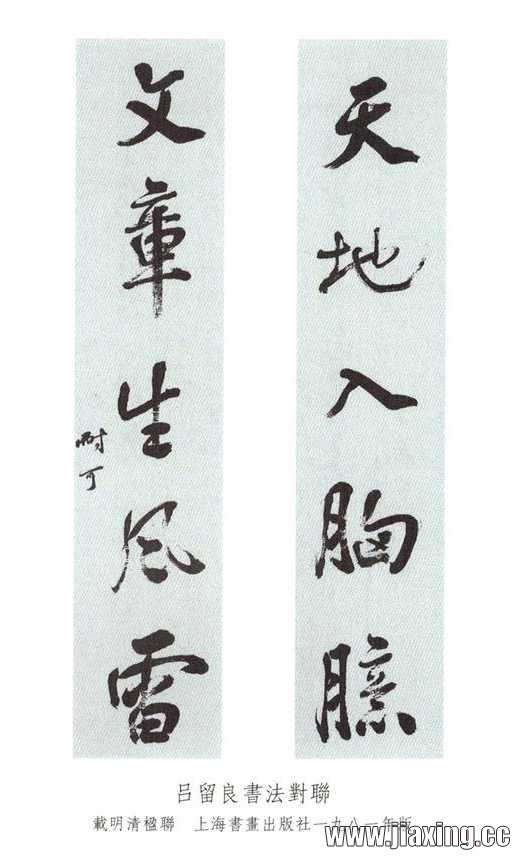 天地入胸臆
文章生风雷
耐可
吕留良書法對聯
載明清楹聯 上海書畫出版社一九八一年版
www.jiaxing.cc